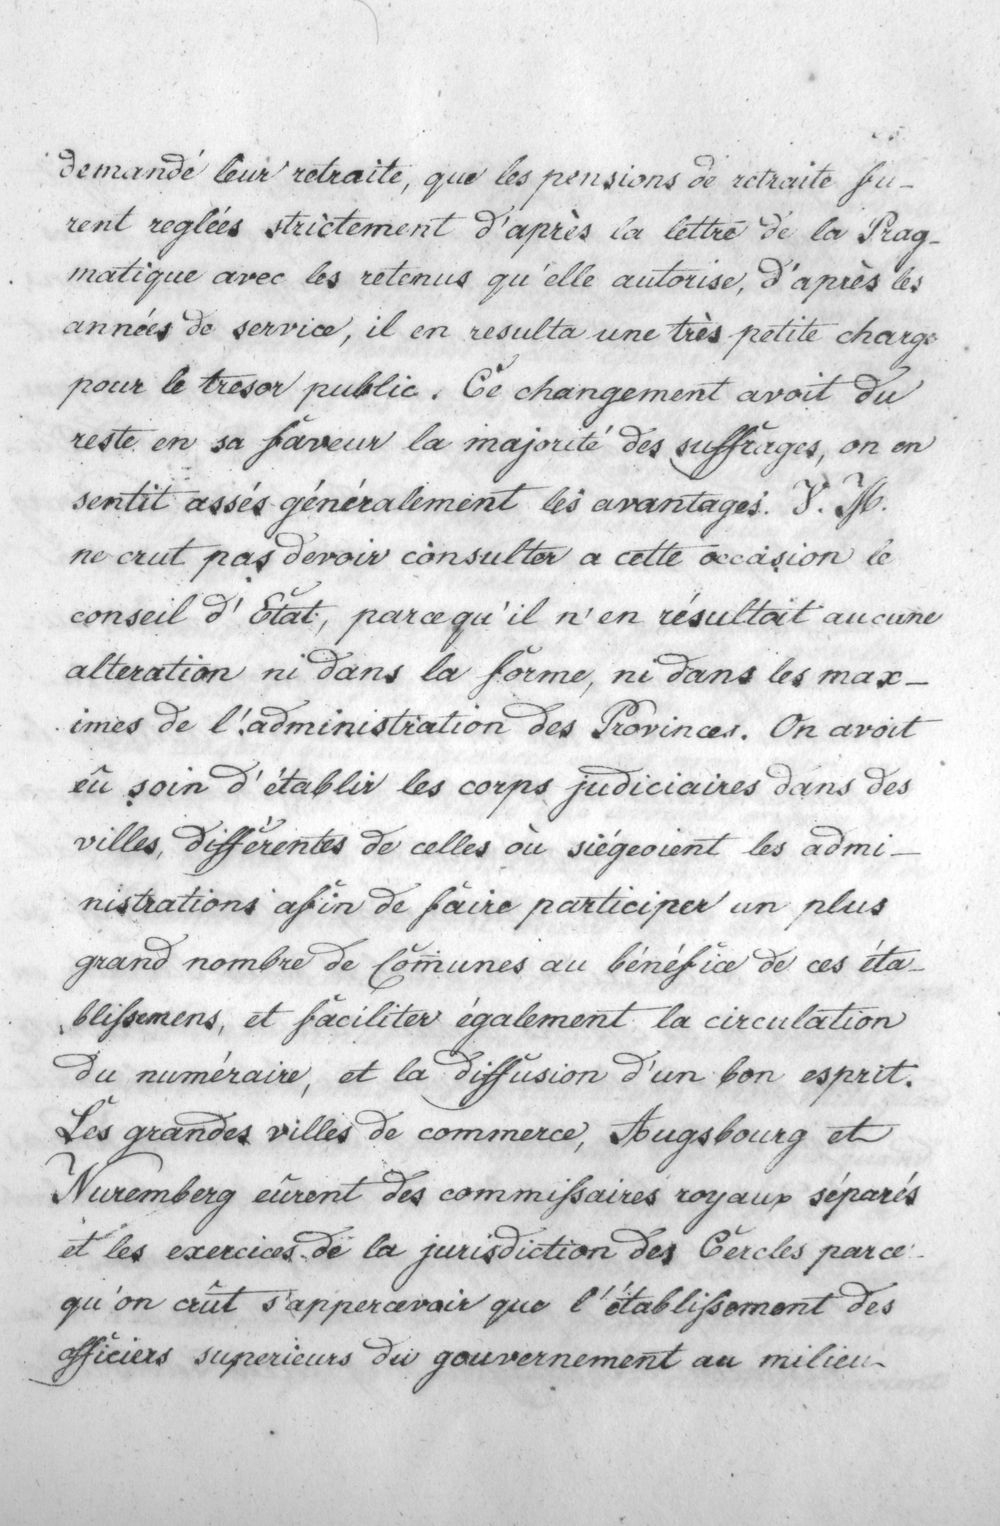 demandé leur retraite, que les pensions de retraite fu-
rent reglées strictement d'après la lettre de la Prag-
matique avec les retenus qu'elle autorise, d'après les
années de service, il en resulta une très petite charge
pour le tresor public. Ce changement avoit du
reste en sa faveur la majorité des suffrages, on en
sentit assés généralement les avantages. V. M.
ne crut pas devoir consulter a cette occasion le
conseil d'Etat, parcequ'il n'en résultoit aucune
alteration ni dans la forme, ni dans les max-
imes de l'administration des Provinces. On avoit
eû soin d'établir les corps judiciaires dans des
villes, différentes de celles où siégeoient les admi-
nistrations afin de faire participer un plus
grand nombre de Com̅unes au bénéfice de ces éta-
blissemens, et faciliter également la circulation
du numéraire, et la diffusion d'un bon esprit.
Les grandes villes de commerce, Augsbourg et
Nuremberg eûrent des commissaires royaux séparés
et les exercices de la jurisdiction des Cercles parce-
qu'on crût s'appercevoir que l'établissement des
officiers superieurs du gouvernement au milieu